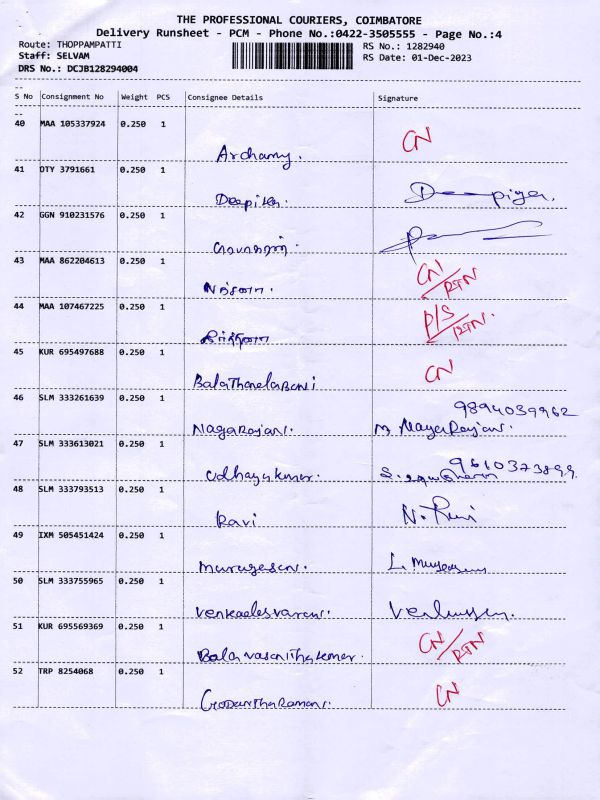 THE PROFESSIONAL COURIERS, COIMBATORE
Delivery Runsheet - PCM - Phone No.:0422-3505555 - Page No.:4
Route: THOPPAMPATTI RS No.: 1282940
Staff: SELVAM RS Date: 01-Dec-2023
DRS No.: DCJB128294004
S No Consignment No Weight PCS Consignee Details Signature
40 MAA 105337924 0.250 1 CN
Archamy.
41 DTY 3791661 0.250 1
Deepika. Deepiga
42 GGN 910231576 0.250 1
43 MAA 862204613 0.250 1 CN/RTN
44 MAA 107467225 0.250 1 P/S/RTN.
45 KUR 695497688 0.250 1 CN
46 SLM 333261639 0.250 1 9894039962
NagaRajan. M NagaRajan.
47 SLM 333613021 0.250 1 9610373899
Udhayakumar.
48 SLM 333793513 0.250 1
Ravi N. Ravi
49 IXM 505451424 0.250 1
Murugesan. L. Murugesan
50 SLM 333755965 0.250 1
Venkatesvaran.
51 KUR 695569369 0.250 1 CN/RTN
Balavasanthakumar.
52 TRP 8254068 0.250 1 CN